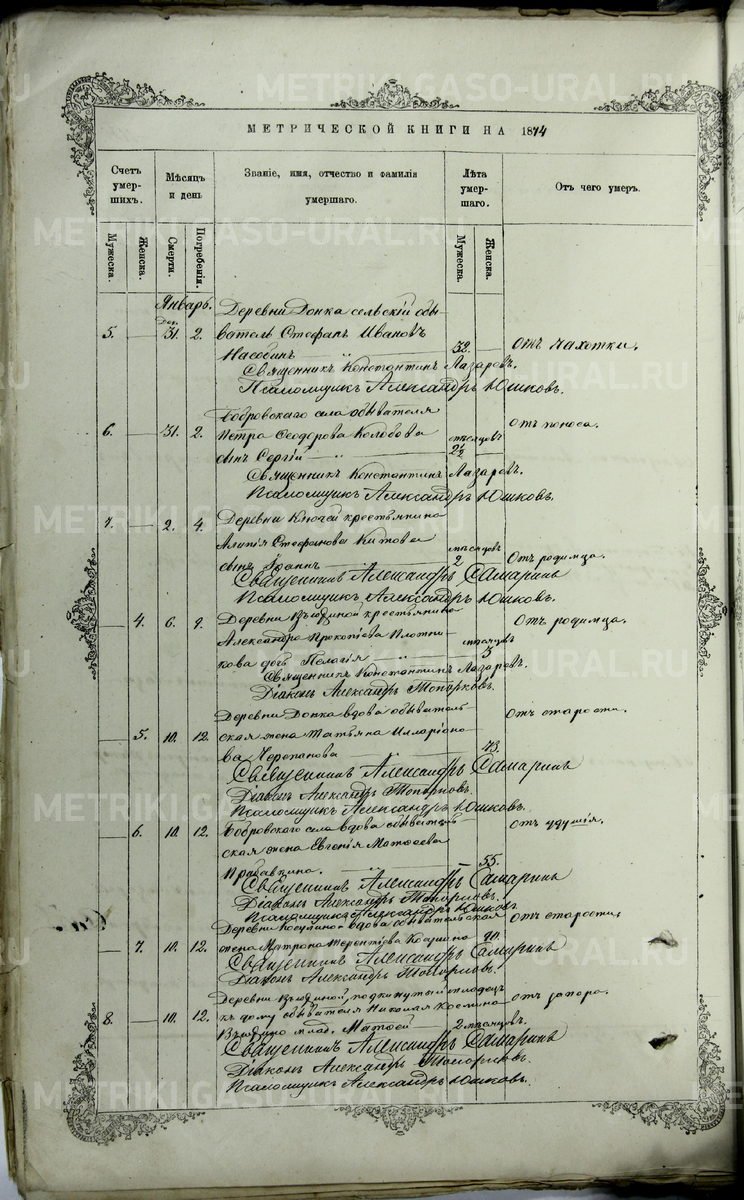 МЕТРИЧЕСКОЙ КНИГИ НА 1874
Счетъ умер-шихъ. Мѣсяцъ и день Званіе, имя, отчество и фамилія умершаго. Лѣта умер-шаго. Отъ чего умеръ.
Мужеска. Женска. Смерти. Погребенія. Мужеска. Женска.
Январь. Деревни Донка сельскій обы-
Дек.
5. — 31. 2. ватель Стефанъ Ивановъ
32. — Отъ чахотки.
Священникъ Константинъ Лазаревъ.
Псаломщикъ Александръ Юшковъ.
Бобровскаго села обывателя
6. — 31. 2. Петра Ѳеодорова Колобова мѣсяцовъ Отъ поноса.
сынъ Сергій — 2½
Священникъ Константинъ Лазаревъ.
Псаломщикъ Александръ Юшковъ.
7. — 2. 4. Деревни Ключей крестьянина
Алипія Стефанова Китова мѣсяцовъ
сынъ Іоаннъ 2 Отъ родимца.
Священникъ Александръ Самаринъ
Псаломщикъ Александръ Юшковъ.
— 4. 6. 9. Деревни Вьюхиной крестьянина Отъ родимца.
Александра Прокопіева Плотни- мѣсяцовъ
кова дочь Пелагія 3
Священникъ Константинъ Лазаревъ.
Діаконъ Александръ Топорковъ.
Деревни Донка вдова обыватель- Отъ старости.
— 5. 10. 12. ская жена Татьяна Илларіоно-
ва Черепанова — 73.
Священникъ Александръ Самаринъ
Діаконъ Александръ Топорковъ.
Псаломщикъ Александръ Юшковъ.
— 6. 10. 12. Бобровскаго села вдова обыватель- Отъ удушія.
ская жена Евгенія Матѳеева
— 55.
Священникъ Александръ Самаринъ
Діаконъ Александръ Топорковъ.
Псаломщикъ Александръ Юшковъ.
Деревни вдова обывательская Отъ старости
— 7. 10. 12. жена Матрона Терентіева Косулина 90.
Священникъ Александръ Самаринъ
Діаконъ Александръ Топорковъ.
Деревни Вьюхиной, подкинутый младенецъ
8. — 10. 12. къ дому обывателя Николая Космина Отъ запора.
Вьюхина млад. Матѳей 2 мѣсяцовъ.
Священникъ Александръ Самаринъ
Діаконъ Александръ Топорковъ.
Псаломщикъ Александръ Юшковъ.
METRIKI.GASO-URAL.RU